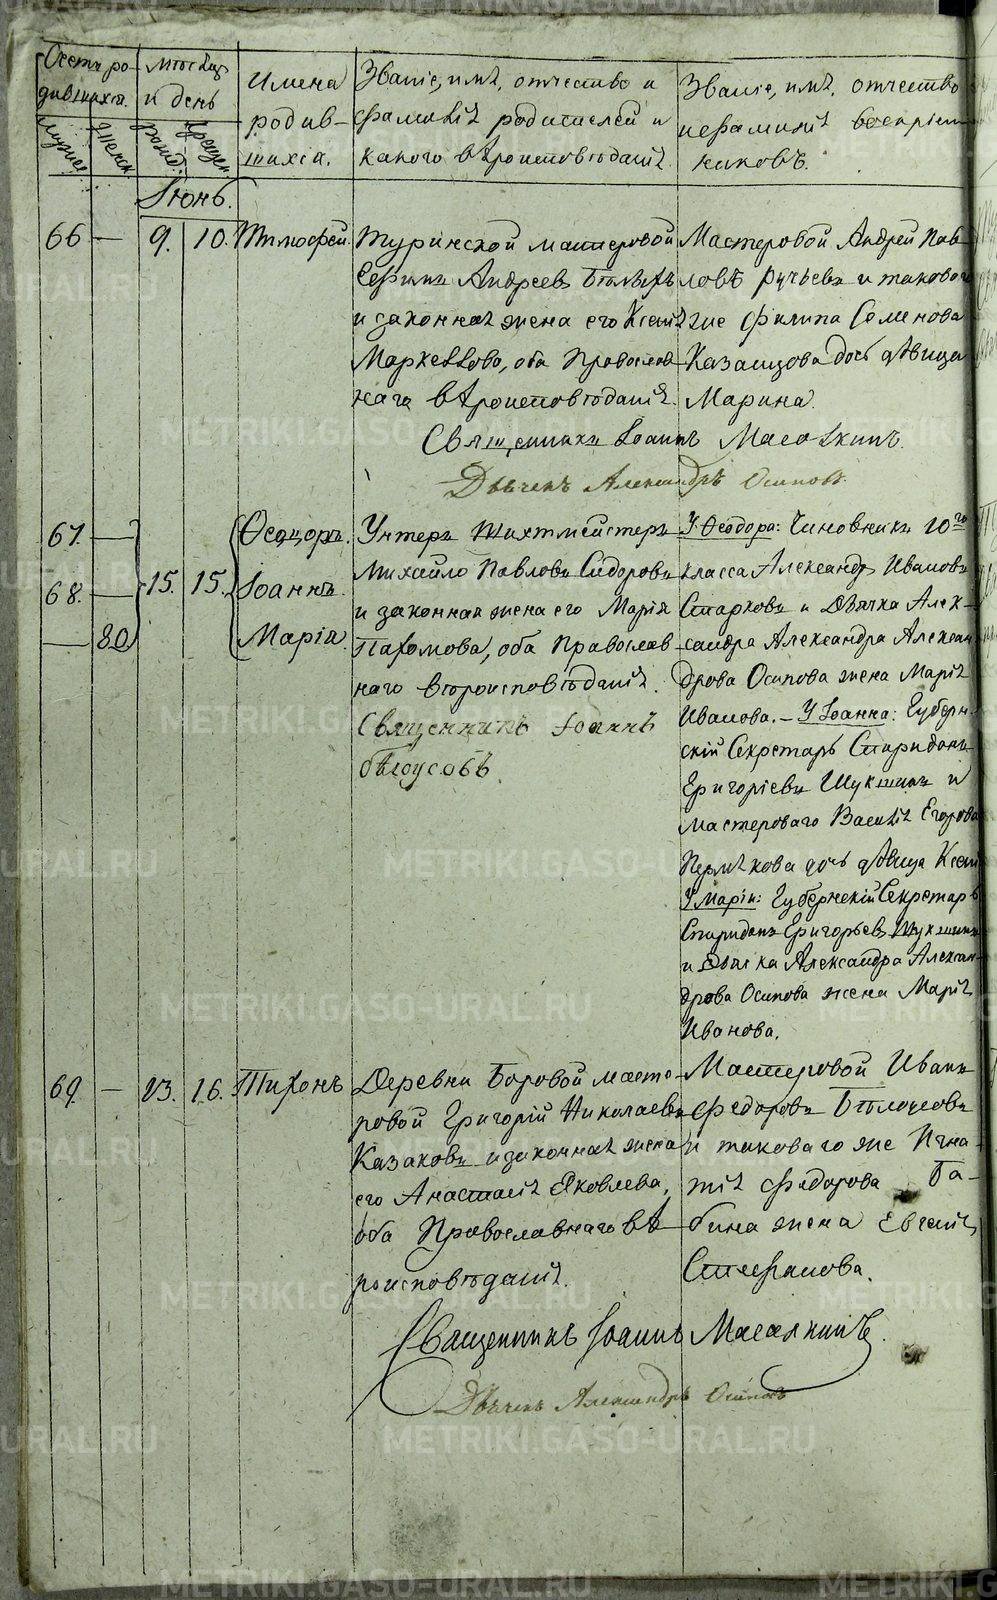 Счетъ ро-
дившихся.
Мужес.
Женск.
Мѣсяцъ
и день
рожд.
крещен.
Имена
родив-
шихся.
Званіе, имя, отчество и
фамилія родителей и
какого вѣроисповѣданія
Званіе, имя, отчество
и фамилія воспріем-
никовъ.
Іюнь.
66 — 9. 10. Тимофей.
Туринской мастеровой
Андреевъ
и законная жена его Ксенія
оба Православ-
наго вѣроисповѣданія.
Мастеровой Андрей Пав-
ловъ Ручьевъ и таковаго
же Филипа Семенова
Казанцова дочь дѣвица
Марина.
Священникъ Іоаннъ Масалкинъ.
Дьячекъ Александръ Осиповъ.
67. —
68. —
— 80
15. 15.
Ѳеодоръ.
Іоаннъ.
Марія.
Унтеръ Шихтмейстеръ
Михайло Павловъ Сидоровъ
и законная жена его Марія
Пахомова, оба Православ-
наго вѣроисповѣданія.
Священникъ Іоаннъ
Бѣлоусовъ.
У Ѳеодора: Чиновникъ 10го
класса Александръ Ивановъ
Старковъ и Дьячка Алек-
сандра Александра Алексан-
дрова Осипова жена Марія
Иванова. — У Іоанна: Губерн-
скій Секретарь Спиридонъ
Григоріевъ Шукшинъ и
Мастероваго Василія Егорова
Пермякова дочь дѣвица Ксенія
У Маріи: Губернскій Секретарь
Спиридонъ Григорьевъ Шукшинъ
и Дьячка Александра Алексан-
дрова Осипова жена Марія
Иванова.
69. — 13. 16. Тихонъ
Деревни Боровой масте-
ровой Григорій Николаевъ
Казаковъ и законная жена
его Анастасія Яковлева,
оба Православнаго вѣ-
роисповѣданія.
Мастеровой Иванъ
Федоровъ
и таковаго же Игна-
тія Федорова Ба-
бина жена Евгенія
Стефанова.
Священникъ Іоаннъ Масалкинъ.
Дьячекъ Александръ Осиповъ
METRIKI.GASO-URAL.RU